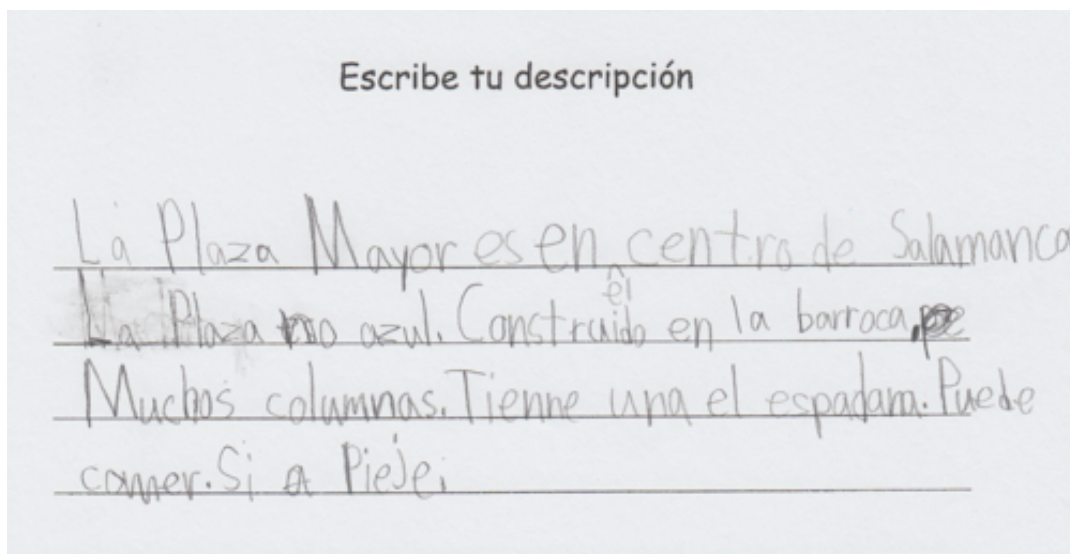 Escribe tu descripción
La Plaza Mayor es en el centro de Salamanca
La Plaza no azul. Construido en la barroca.
Muchos columnas. Tienne una el espadana. Puede
comer. Si a Pieje.